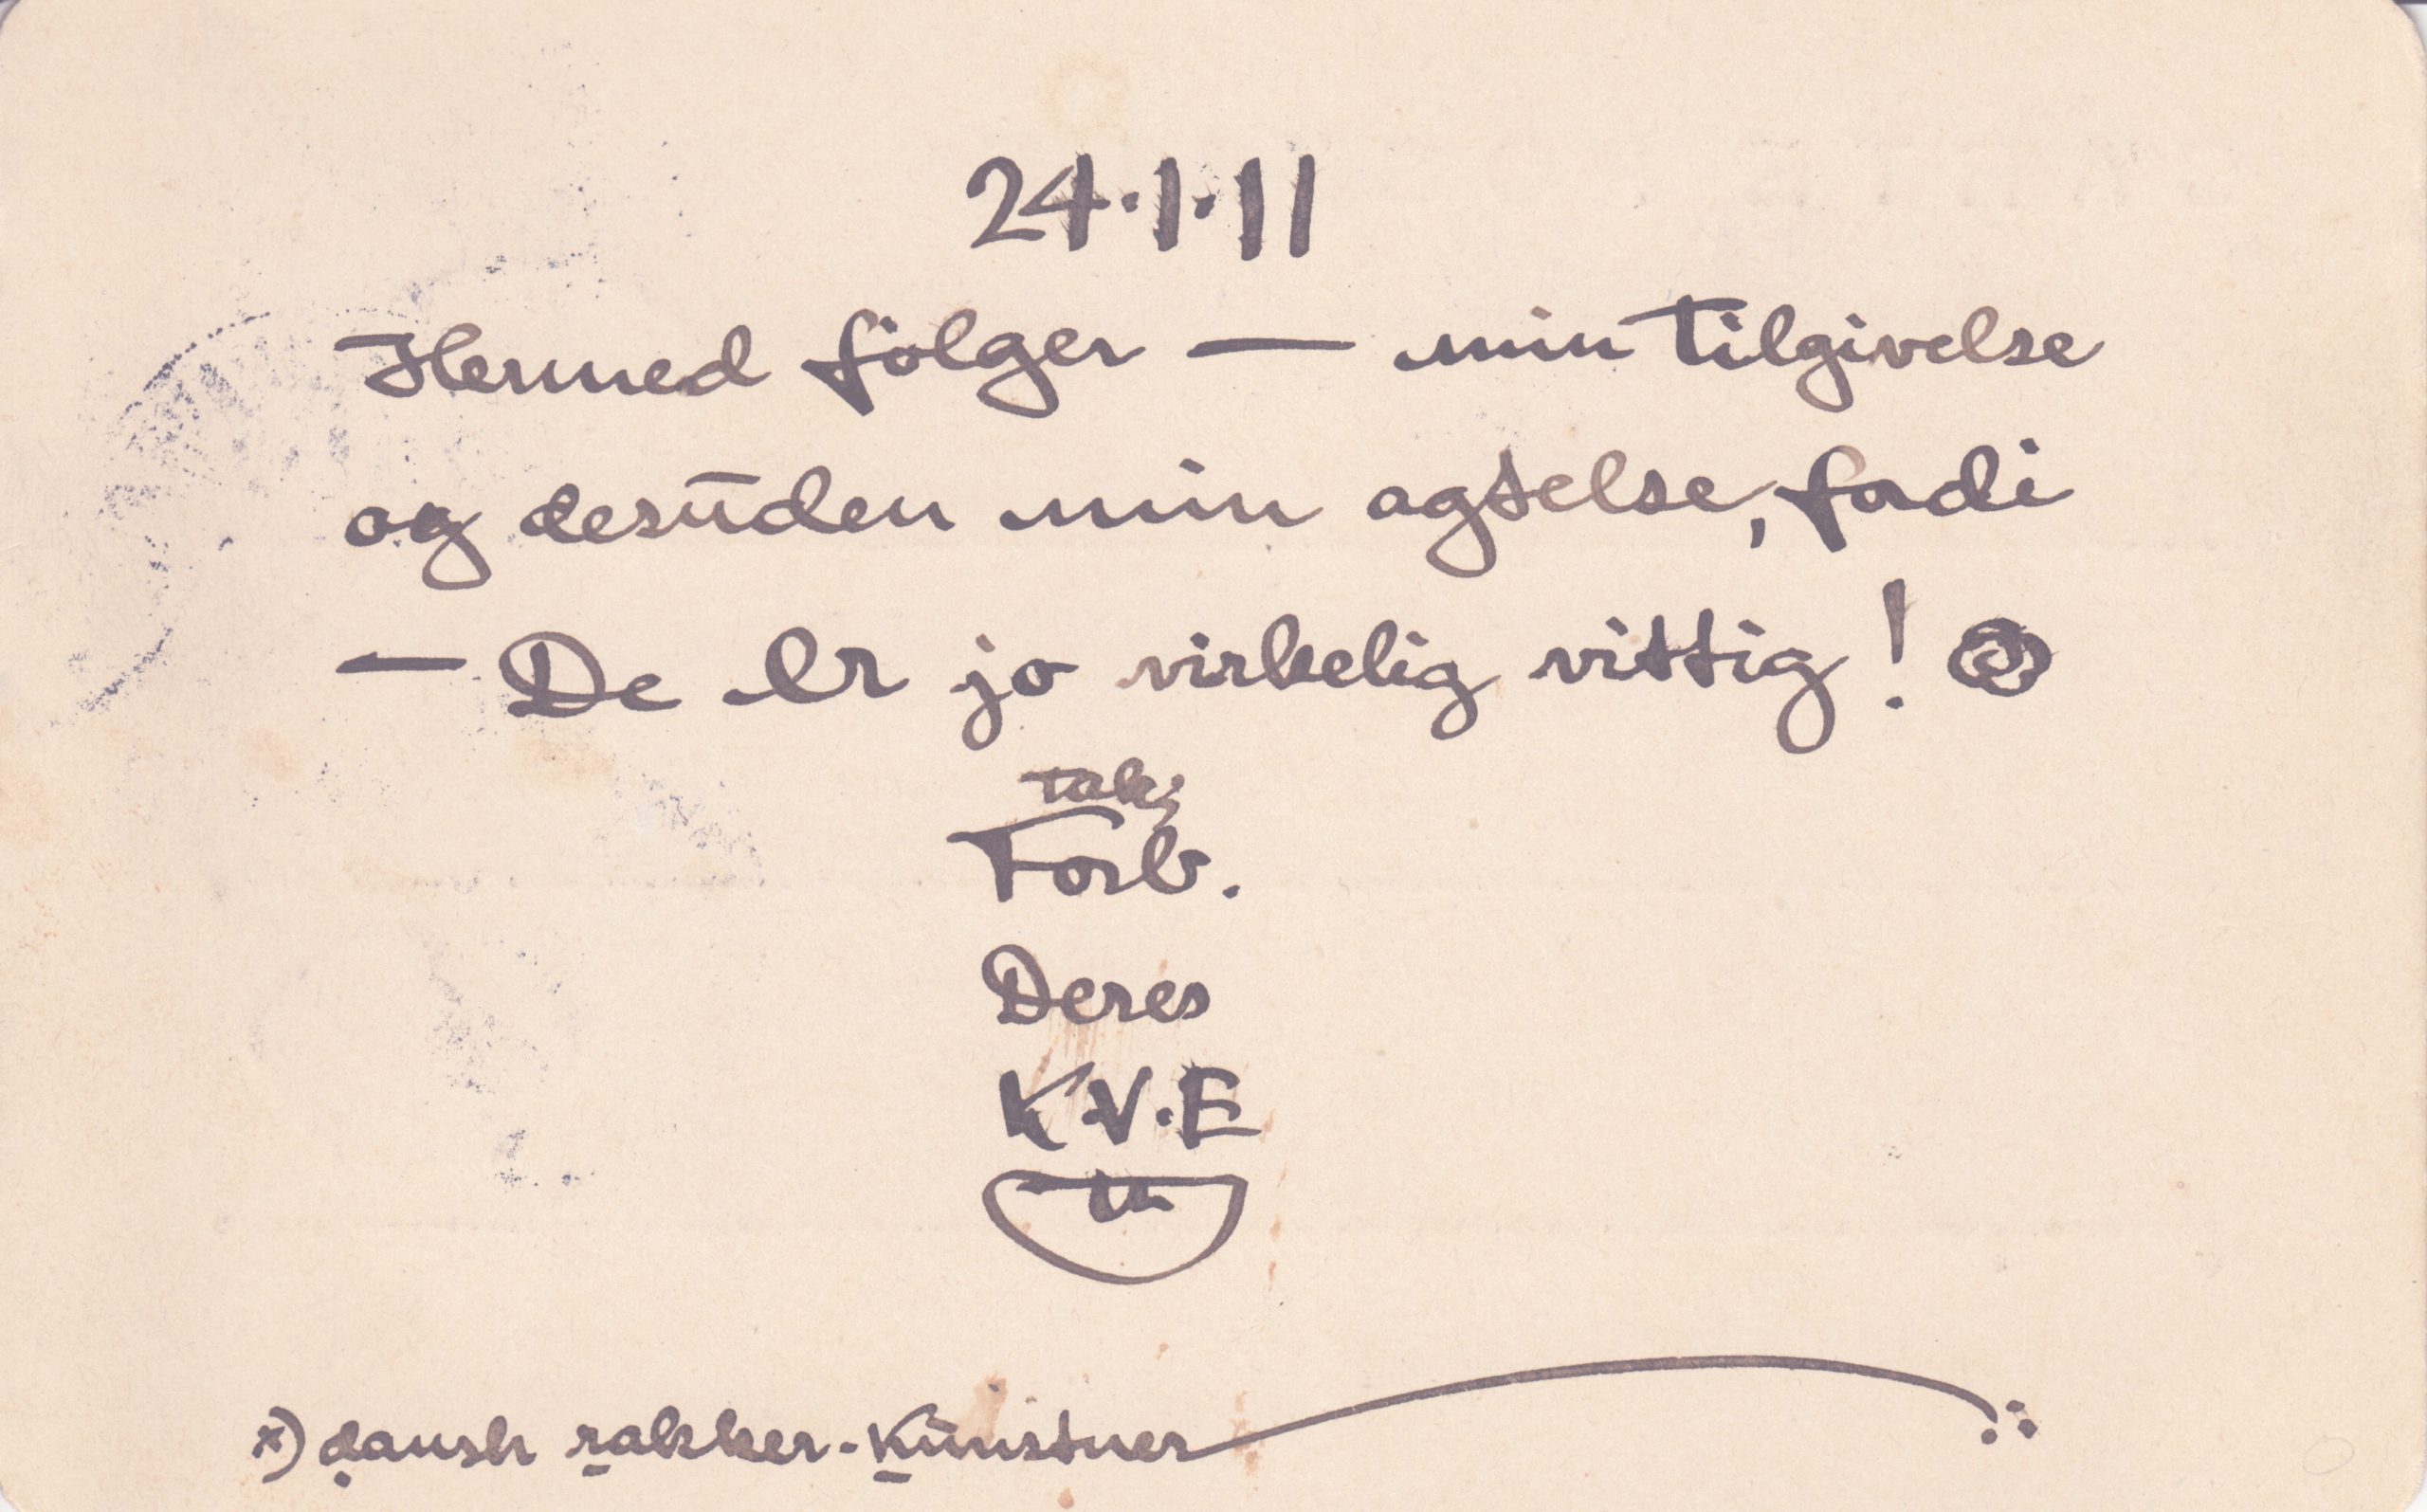 24·1·11
Hermed følger — min tilgivelse
og desūden min agtelse, fordi
— De er jo virkelig vittig!
tak,
Forb.
Deres
K.V.E
*) dansk rakker-Künstner